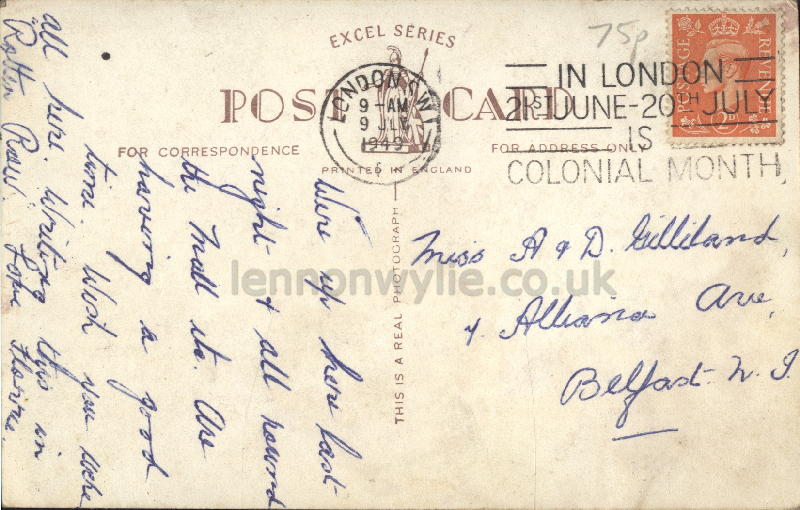 75p
EXCEL SERIES
POST CARD
LONDON W.1
9-AM
9 JLY
1949
IN LONDON
21ST JUNE-20TH JULY
IS
COLONIAL MONTH
POSTAGE REVENUE
2D
FOR CORRESPONDENCE
FOR ADDRESS ONLY
PRINTED IN ENGLAND
THIS IS A REAL PHOTOGRAPH
Were up here last
night & all round
the Mall etc. Are
having a good
time. Wish you were
all here. Writing this in
Rotten Row. Love Florine.
Miss A & D. Gilliland,
Alliance Ave,
Belfast. N. I.
lennonwylie.co.uk